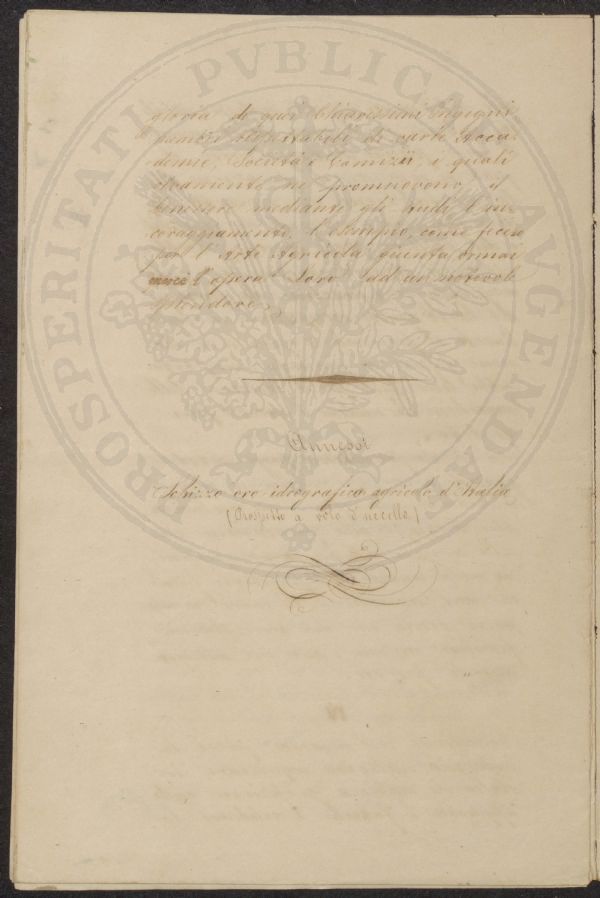 gloria di quei Chiarissimi Ingegni
membri rispettabili di varie Acca-
demie, Società e Comizii, i quali
vivamente ne promuovono il
benessere mediante gli studi l'in-
coraggiamento, l'esempio, come fecero
per l'Arte Agricola giunta ormai
mercè l'opera loro ad un notevole
splendore.
Annessi
Schizzo oro-idrografico agricolo d'Italia
(Prospetto a volo d'uccello)
PROSPERITATI PVBLICAE AVGENDAE